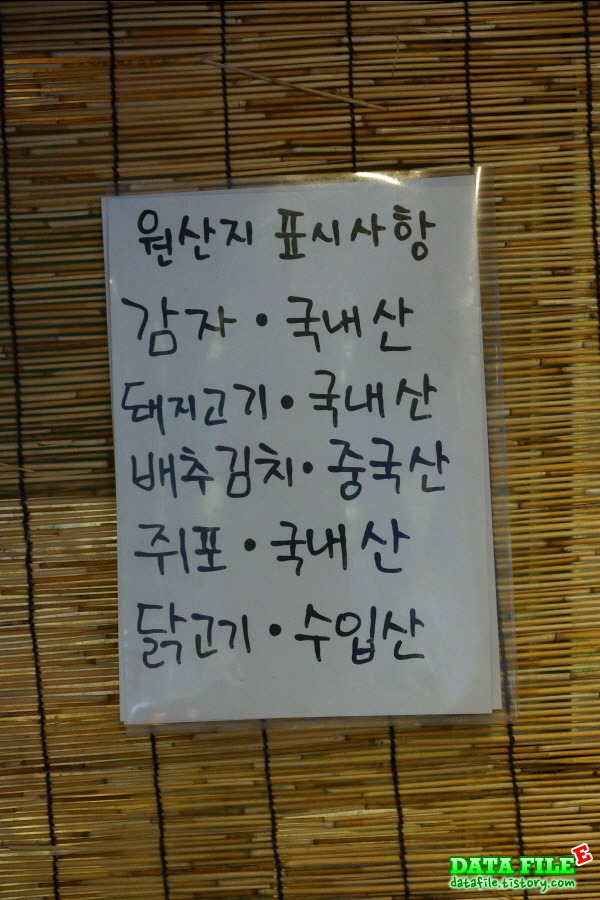 원산지 표시사항
감자 · 국내산
돼지고기 · 국내산
배추김치 · 중국산
쥐포 · 국내산
닭고기 · 수입산
DATA FILE E
datafile.tistory.com